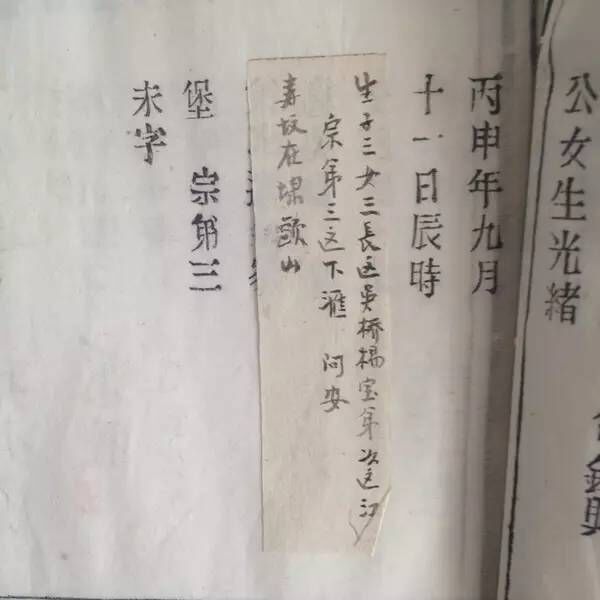 公女生光緒
丙申年九月
十一日辰時
生子三女三長适吳橋楊宝第次适江
宗第三适下滙 阿安
壽坟在塘頭山
堡 宗第三
未字